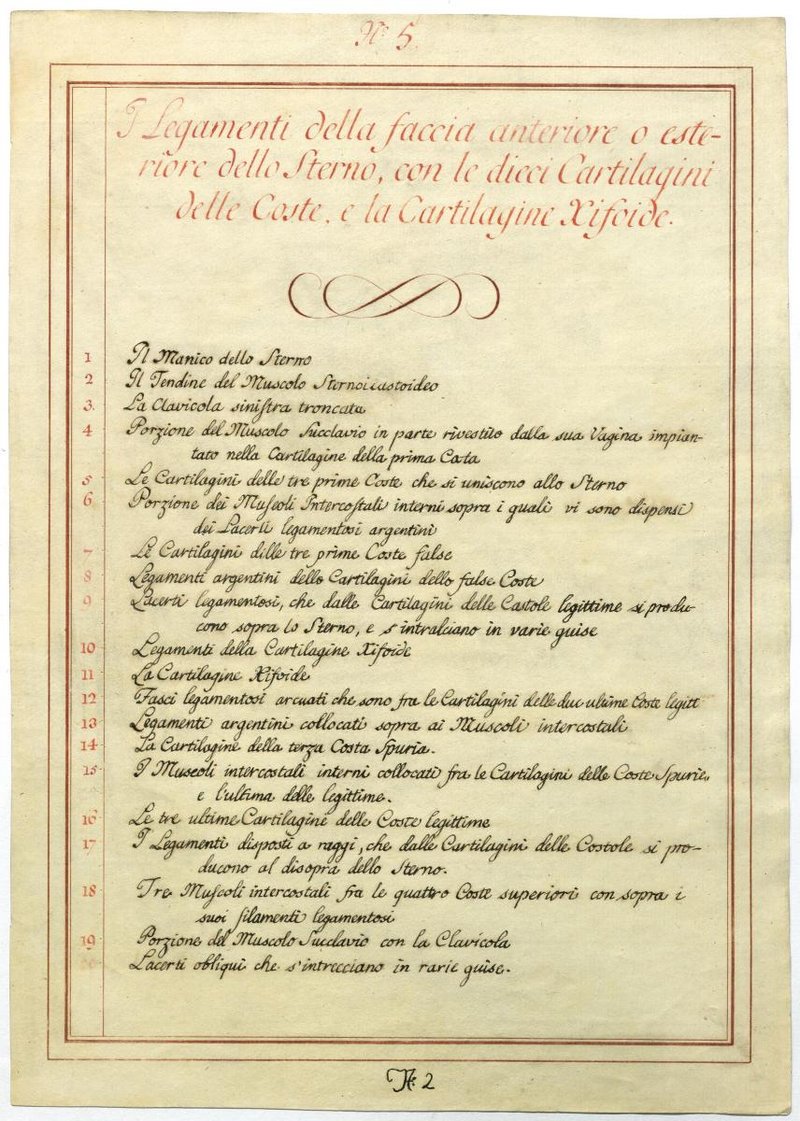 Nº 5
I Legamenti della faccia anteriore o este-
riore dello Sterno, con le dieci Cartilagini
delle Coste, e la Cartilagine Xifoide.
1 Il Manico dello Sterno
2 Il Tendine del Muscolo
3. La Clavicola sinistra troncata
4 Porzione del Muscolo Succlavio in parte rivestito dalla sua Vagina impian-
tato nella Cartilagine della prima
5 Le Cartilagini delle tre prime Coste che si uniscono allo Sterno
6 Porzione dei Muscoli Intercostali interni sopra i quali vi sono dispensi
dei Lacerti legamentosi argentini
7 Le Cartilagini delle tre prime Coste false
8 Legamenti argentini delle Cartilagini delle false Coste
9 Lacerti legamentosi, che dalle Cartilagini delle Costole legittime si produ-
cono sopra lo Sterno, e s'intralciano in varie guise
10 Legamenti della Cartilagine Xifoide
11 La Cartilagine Xifoide
12 Fasci legamentosi arcuati che sono fra le Cartilagini delle due ultime Coste legitt
13 Legamenti argentini collocati sopra ai Muscoli intercostali
14 La Cartilagine della terza Costa Spuria.
15 I Muscoli intercostali interni collocati fra le Cartilagini delle Coste Spurie,
e l'ultima delle legittime.
16 Le tre ultime Cartilagini delle Coste legittime
17 I Legamenti disposti a raggi, che dalle Cartilagini delle Costole si pro-
ducono al disopra dello Sterno.
18 Tre Muscoli intercostali fra le quattro Coste superiori con sopra i
suoi filamenti legamentosi
19 Porzione del Muscolo Succlavio con la Clavicola
Lacerti obliqui che s'intrecciano in rarie guise.
2